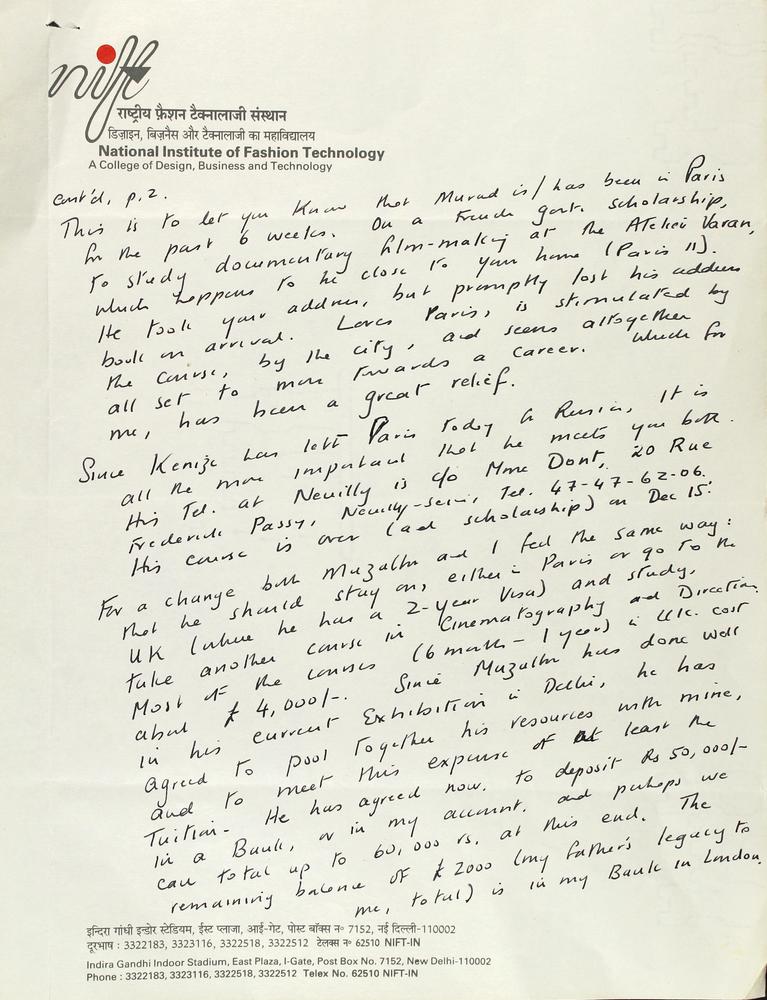 nift
राष्ट्रीय फ़ैशन टैक्नालाजी संस्थान
डिज़ाइन, बिज़नैस और टैक्नालाजी का महाविद्यालय
National Institute of Fashion Technology
A College of Design, Business and Technology
cont'd, p. 2.
This is to let you know that Murad is/has been in Paris
for the past 6 weeks. On a French govt. scholarship,
to study documentary film-making at the Atelier Varan,
which happens to be close to your home (Paris 11).
He took your address, but promptly lost his address
book on arrival. Loves Paris, is stimulated by
the course, by the city, and seems altogether
all set to move towards a career. Which for
me, has been a great relief.
Since Kenize has left Paris today for Russia, it is
all the more important that he meets you both.
His Tel. at Neuilly is c/o Mme Dont, 20 Rue
Frederick Passy, Neuilly-sein, Tel. 47-47-62-06.
His course is over (and scholarship) on Dec 15.
For a change both Muzaffar and I feel the same way:
that he should stay on, either in Paris or go to the
UK (where he has a 2-year Visa) and study,
take another course in Cinematography and Direction.
Most of the courses (6 month - 1 year) in U.K. cost
about £ 4,000/-. Since Muzaffar has done well
in his current Exhibition in Delhi, he has
agreed to pool together his resources with mine,
and to meet this expense of at least the
Tuition - He has agreed now to deposit Rs 50,000/-
in a Bank, or in my account, and perhaps we
can total up to 60,000 rs. at this end. The
remaining balance of £ 2000 (my father's legacy to
me, total) is in my Bank in London.
इन्दिरा गांधी इन्डोर स्टेडियम, ईस्ट प्लाजा, आई-गेट, पोस्ट बॉक्स न० 7152, नई दिल्ली-110002
दूरभाष : 3322183, 3323116, 3322518, 3322512 टेलक्स न० 62510 NIFT-IN
Indira Gandhi Indoor Stadium, East Plaza, I-Gate, Post Box No. 7152, New Delhi-110002
Phone : 3322183, 3323116, 3322518, 3322512 Telex No. 62510 NIFT-IN